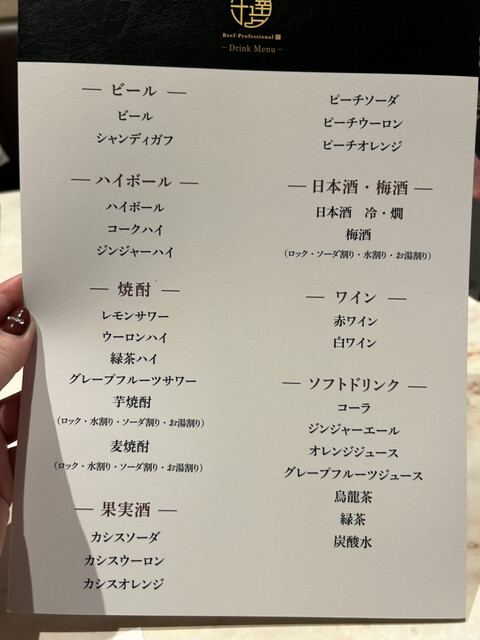 Beef-Professional
– Drink Menu –
— ビール —
ビール
シャンディガフ
— ハイボール —
ハイボール
コークハイ
ジンジャーハイ
— 焼酎 —
レモンサワー
ウーロンハイ
緑茶ハイ
グレープフルーツサワー
芋焼酎
(ロック・水割り・ソーダ割り・お湯割り)
麦焼酎
(ロック・水割り・ソーダ割り・お湯割り)
— 果実酒 —
カシスソーダ
カシスウーロン
カシスオレンジ
ピーチソーダ
ピーチウーロン
ピーチオレンジ
— 日本酒・梅酒 —
日本酒 冷・燗
梅酒
(ロック・ソーダ割り・水割り・お湯割り)
— ワイン —
赤ワイン
白ワイン
— ソフトドリンク —
コーラ
ジンジャーエール
オレンジジュース
グレープフルーツジュース
烏龍茶
緑茶
炭酸水